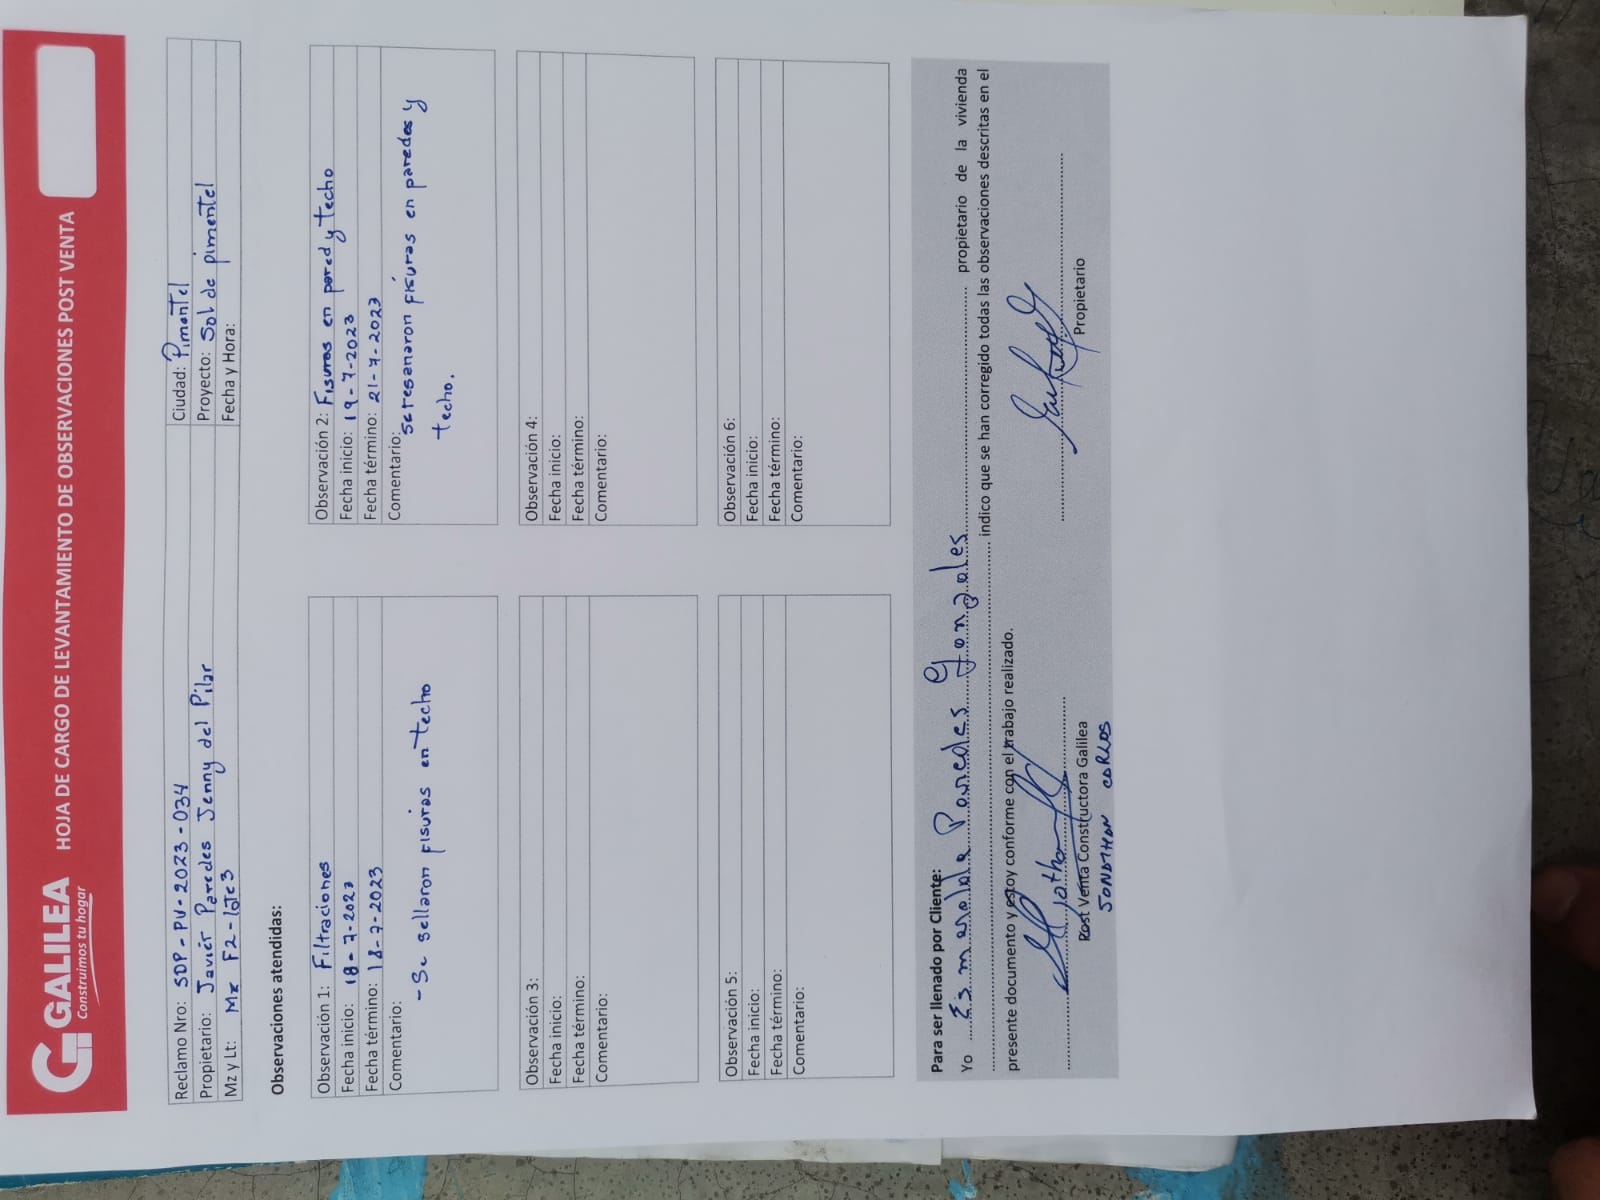 GALILEA
Construimos tu hogar
HOJA DE CARGO DE LEVANTAMIENTO DE OBSERVACIONES POST VENTA
Reclamo Nro: SDP-PV-2023-034
Ciudad: Pimentel
Propietario: Javier Paredes Jenny del Pilar
Proyecto: Sol de pimentel
Mz y Lt: Mz F2-lote3
Fecha y Hora:
Observaciones atendidas:
Observación 1: Filtraciones
Fecha inicio: 18-7-2023
Fecha término: 18-7-2023
Comentario:
- Se sellaron fisuras en techo
Observación 2: Fisuras en pared y techo
Fecha inicio: 19-7-2023
Fecha término: 21-7-2023
Comentario:
se resanaron fisuras en paredes y
techo.
Observación 3:
Fecha inicio:
Fecha término:
Comentario:
Observación 4:
Fecha inicio:
Fecha término:
Comentario:
Observación 5:
Fecha inicio:
Fecha término:
Comentario:
Observación 6:
Fecha inicio:
Fecha término:
Comentario:
Para ser llenado por Cliente:
Yo Esmeralda Paredes Gonzales propietario de la vivienda
indico que se han corregido todas las observaciones descritas en el
presente documento y estoy conforme con el trabajo realizado.
Post Venta Constructora Galilea
JONATHAN CORLOS
Propietario